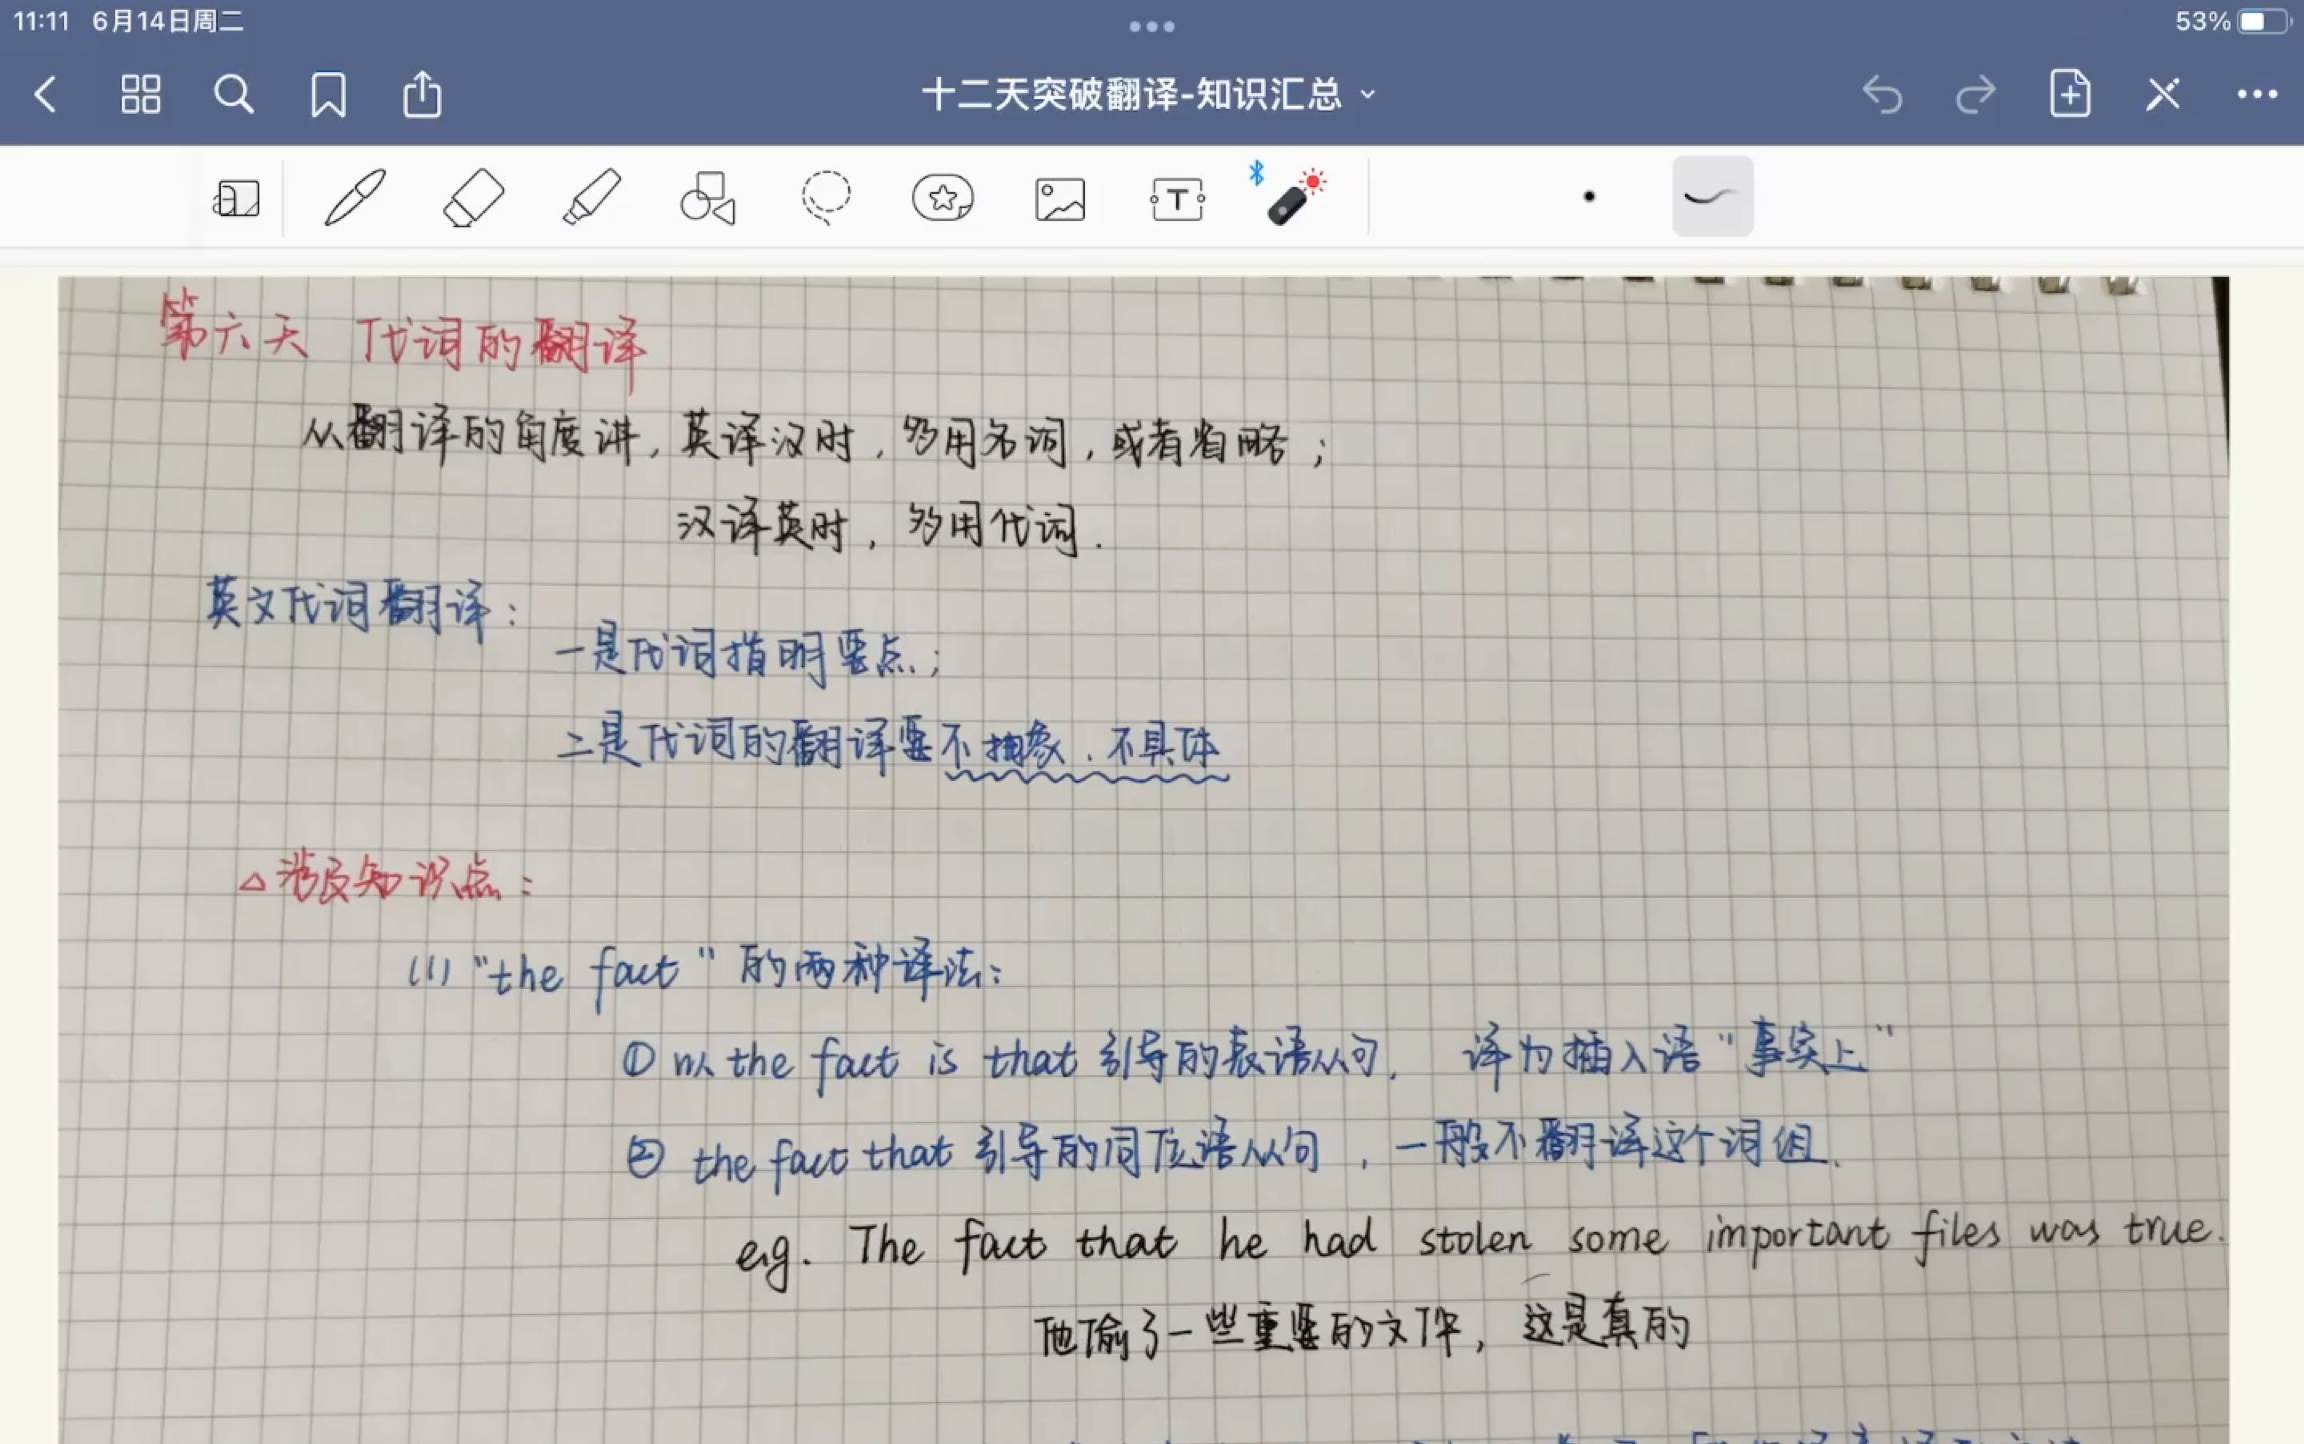 11:11 6月14日周二
53%
十二天突破翻译-知识汇总
第六天 代词的翻译
从翻译的角度讲,英译汉时,多用名词,或者省略;
汉译英时,多用代词.
英文代词翻译:
一是代词指明要点;
二是代词的翻译要不抽象.不具体
△涉及知识点:
(1) "the fact" 的两种译法:
① 以 the fact is that 引导的表语从句, 译为插入语"事实上"
② the fact that 引导的同位语从句,一般不翻译这个词组.
eg. The fact that he had stolen some important files was true.
他偷了一些重要的文件,这是真的